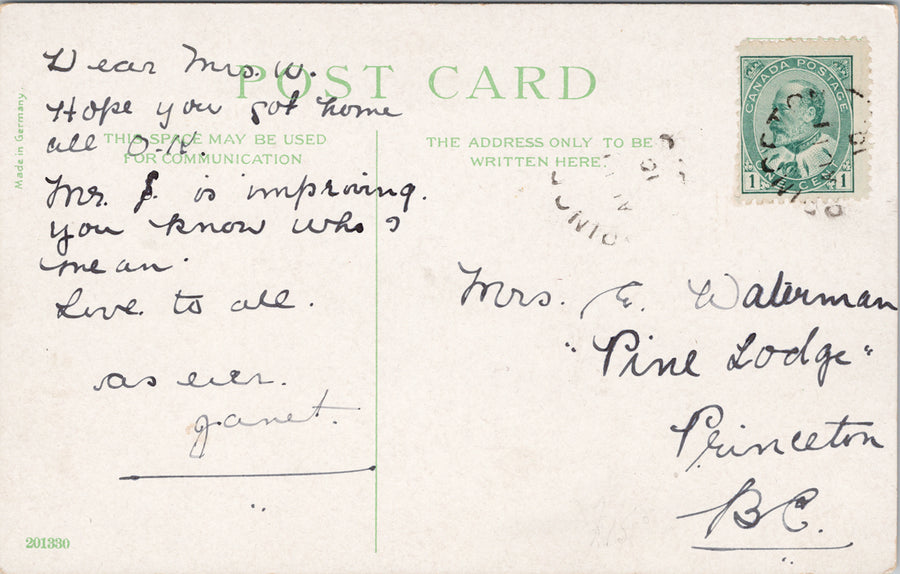 POST CARD
Made in Germany
THIS SPACE MAY BE USED
FOR COMMUNICATION
THE ADDRESS ONLY TO BE
WRITTEN HERE
Dear Mrs. W.
Hope you got home
all O-K.
Mr. S. is improving.
you know who I
mean.
Love to all.
as ever.
Janet.
201330
CANADA POSTAGE
1 CENT 1
Mrs. E. Waterman
"Pine Lodge"
Princeton
B.C.